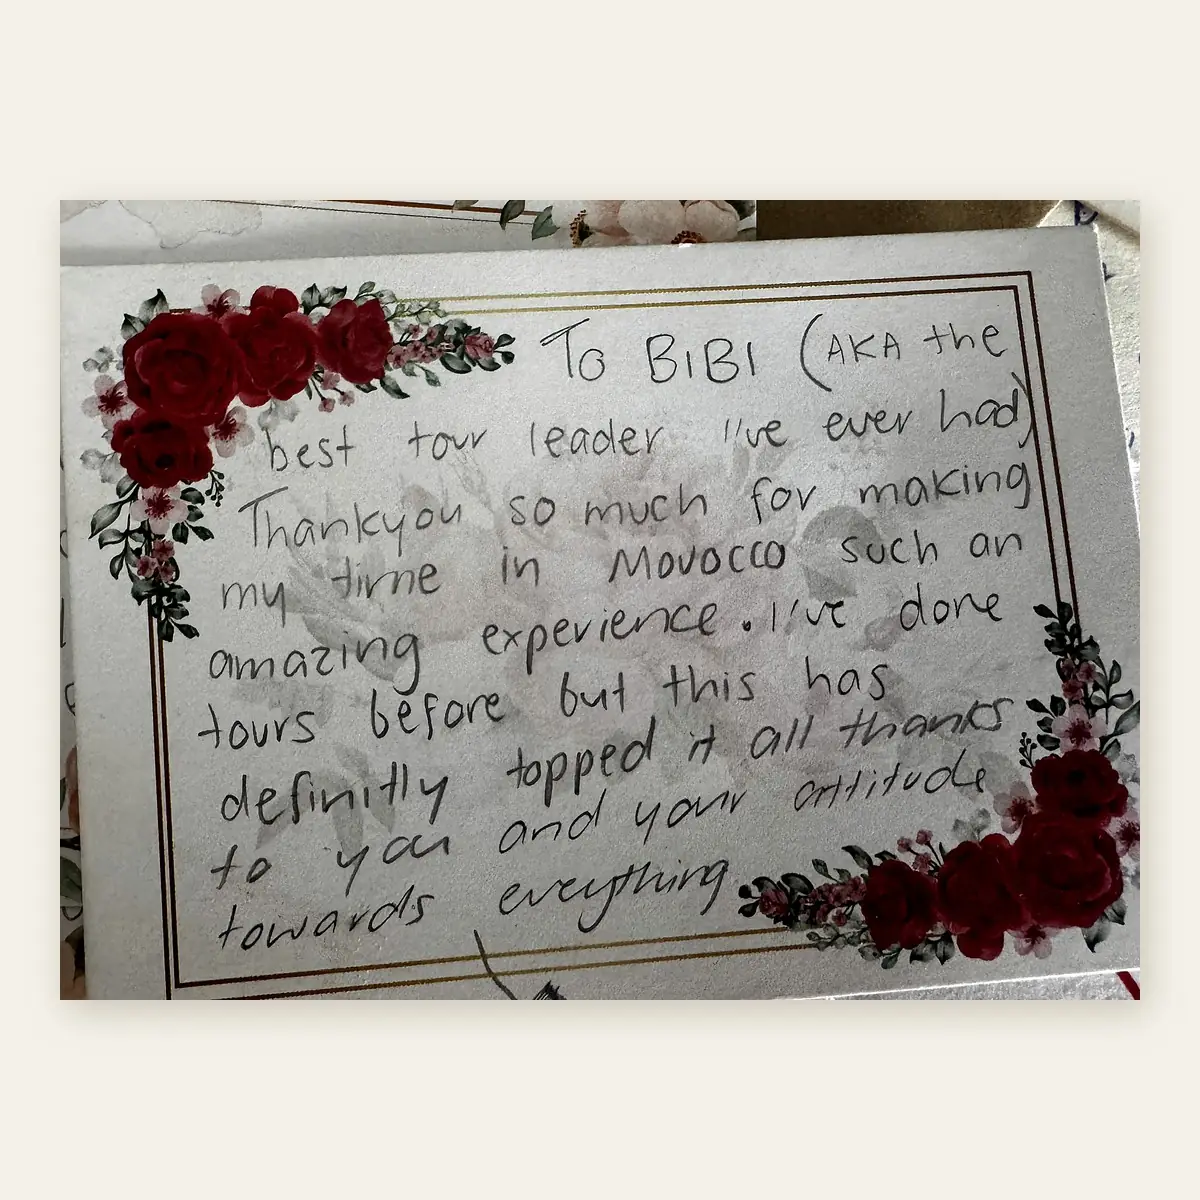 To BIBI (AKA the
best tour leader I've ever had)
Thankyou so much for making
my time in Morocco such an
amazing experience. I've done
tours before but this has
definitly topped it all thanks
to you and your attitude
towards everything